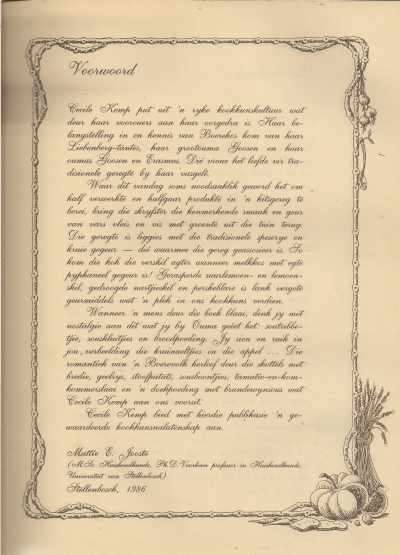 Voorwoord
Cecile Kemp put uit 'n ryke kookkunskultuur wat
deur haar voorouers aan haar oorgedra is. Haar be-
langstelling in en kennis van Boerekos kom van haar
Liebenberg-tantes, haar grootouma Goosen en haar
oumas Goosen en Erasmus. Dié vroue het liefde vir tra-
disionele geregte by haar vasgelê.
Waar dit vandag soms noodsaaklik geword het om
half verwerkte en halfgaar produkte in 'n kitsgereg te
berei, bring die skryfster die kenmerkende smaak en geur
van vars vleis en vis met groente uit die tuin terug.
Die geregte is liggies met die tradisionele speserye en
kruie gegeur — dié waarmee die gereg geassosieer is. So
kom die kok die verskil agter wanneer melkkos met egte
pypkaneel gegeur is! Gerasperde suurlemoen- en lemoen-
skil, gedroogde nartjieskil en perskeblare is lank vergete
geurmiddels wat 'n plek in ons kookkuns verdien.
Wanneer 'n mens deur die boek blaai, dink jy met
nostalgie aan dit wat jy by Ouma geëet het: soutribbe-
tjie, souskluitjies en broodpoeding. Jy sien en ruik in
jou verbeelding die kruinaeltjies in die appel ... Die
romantiek van 'n Boerevolk herleef deur die skottels met
bredie, geelrys, stoofpatats, sousboontjies, tamatie-en-kom-
kommerslaai en 'n doekpoeding met brandewynsous wat
Cecile Kemp aan ons voorsit.
Cecile Kemp bied met hierdie publikasie 'n ge-
waardeerde kookkunsnalatenskap aan.
Mattie E. Jooste
(M.Sc. Huishoudkunde, Ph.D. Voorheen professor in Huishoudkunde,
Universiteit van Stellenbosch)
Stellenbosch, 1986